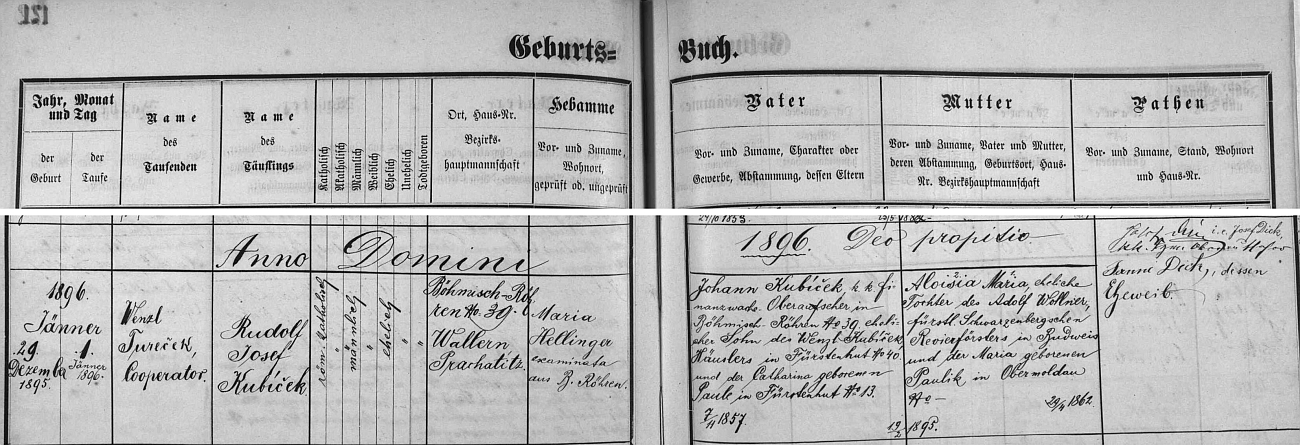 121
Geburts=
Buch.
Jahr, Monat und Tag
der Geburt
der Taufe
Name des Taufenden
Name des Täuflings
Katholisch
Akatholisch
Männlich
Weiblich
Ehelich
Unehelich
Todtgeboren
Ort, Haus-Nr. Bezirks-hauptmannschaft
Hebamme
Vor- und Zuname, Wohnort, geprüft od. ungeprüft
Vater
Vor- und Zuname, Charakter oder
Gewerbe, Abstammung, dessen Eltern
Mutter
Vor- und Zuname, Vater und Mutter,
deren Abstammung, Geburtsort, Haus-
Nr. Bezirkshauptmannschaft
Pathen
Vor- und Zuname, Stand, Wohnort
und Haus-Nr.
Anno Domini
1896. Deo propitio
1896.
Jänner
29.
Dezemb.
1895.
1.
Jänner
1896.
Wenzl
Tureček,
Cooperator.
Rudolf
Josef
Kubíček
röm. katholisch
"
männlich
"
ehelich
"
"
Böhmisch-Röh-
ren No. 39.
Wallern
Prachatitz.
Maria
Hellinger
examinata
aus B. Röhren.
Johann Kubíček, k. k. Fi-
nanzwach-Oberaufseher, in
Böhmisch-Röhren No 39, eheli-
cher Sohn des Wenzl Kubíček
Häuslers in Fürstenhut No 40
und der Catharina geborenen
Paule in Fürstenhut No 13.
1857.
Aloisia Maria, eheliche
Tochter des Adolf Wollner,
fürstl. Schwarzenbergschen
Revierförsters in Budweis
und der Maria geborenen
Paulik in Obermoldau
No –
1862.
19/2 1895.
i. e. Josef Dick,
Dick, dessen
Eheweib.